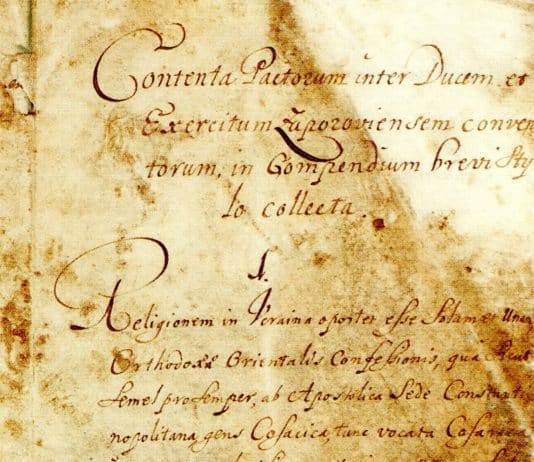 Contenta Pactorum inter Ducem et
Exercitum Zaporoviensem conven
torum, in Compendium brevi Sty
lo collecta.
1.
Religionem in Vcraina oportet esse Solam et Unam
Orthodoxæ Orientalis Confessionis, quâ
semel pro semper, ab Apostolica Sede Constanti
nopolitana, gens Cosacica, tunc vocata Cosarica